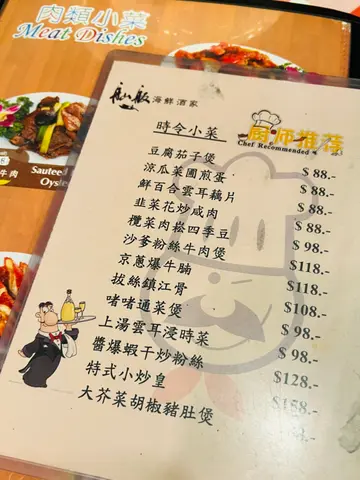 肉類小菜
Meat Dishes
海鮮酒家
時令小菜
廚师推薦
Chef Recommended
豆腐茄子煲 $ 88.-
涼瓜菜圃煎蛋 $ 88.-
鮮百合雲耳藕片 $ 88.-
韭菜花炒咸肉 $ 88.-
欖菜肉崧四季豆 $ 88.-
沙爹粉絲牛肉煲 $ 98.-
京蔥爆牛腩 $118.-
拔絲鎮江骨 $118.-
啫啫通菜煲 $108.-
上湯雲耳浸時菜 $ 98.-
醬爆蝦干炒粉絲 $ 98.-
特式小炒皇 $128.-
大芥菜胡椒豬肚煲 $158.-
牛肉
Oyste